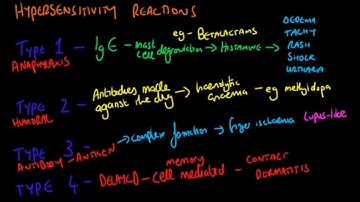 HYPERSENSITIVITY REACTIONS
TYPE 1 - IgE - mast cell degradation → HISTAMINE → OEDEMA TACHY RASH SHOCK URTICARIA
eg - BETALACTAMS
ANAPHYLAXIS
TYPE 2 - Antibodies made against the drug → haemolytic anaemia - eg methyldopa
HUMORAL
TYPE 3 - → complex formation → finger ischaemia Lupus-like
ANTIBODY-ANTIGEN
TYPE 4 - DELAYED - memory cell mediated - CONTACT DERMATITIS